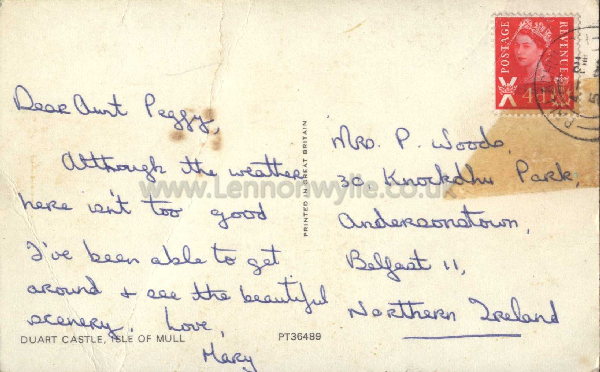 POSTAGE
REVENUE
4d
Dear Aunt Peggy,
Although the weather
here isn't too good
I've been able to get
around & see the beautiful
scenery. Love,
Mary
DUART CASTLE, ISLE OF MULL
PT36489
PRINTED IN GREAT BRITAIN
Mrs. P. Woods,
30, Knockdhu Park,
Andersonstown,
Belfast 11,
Northern Ireland
www.Lennonwylie.co.uk